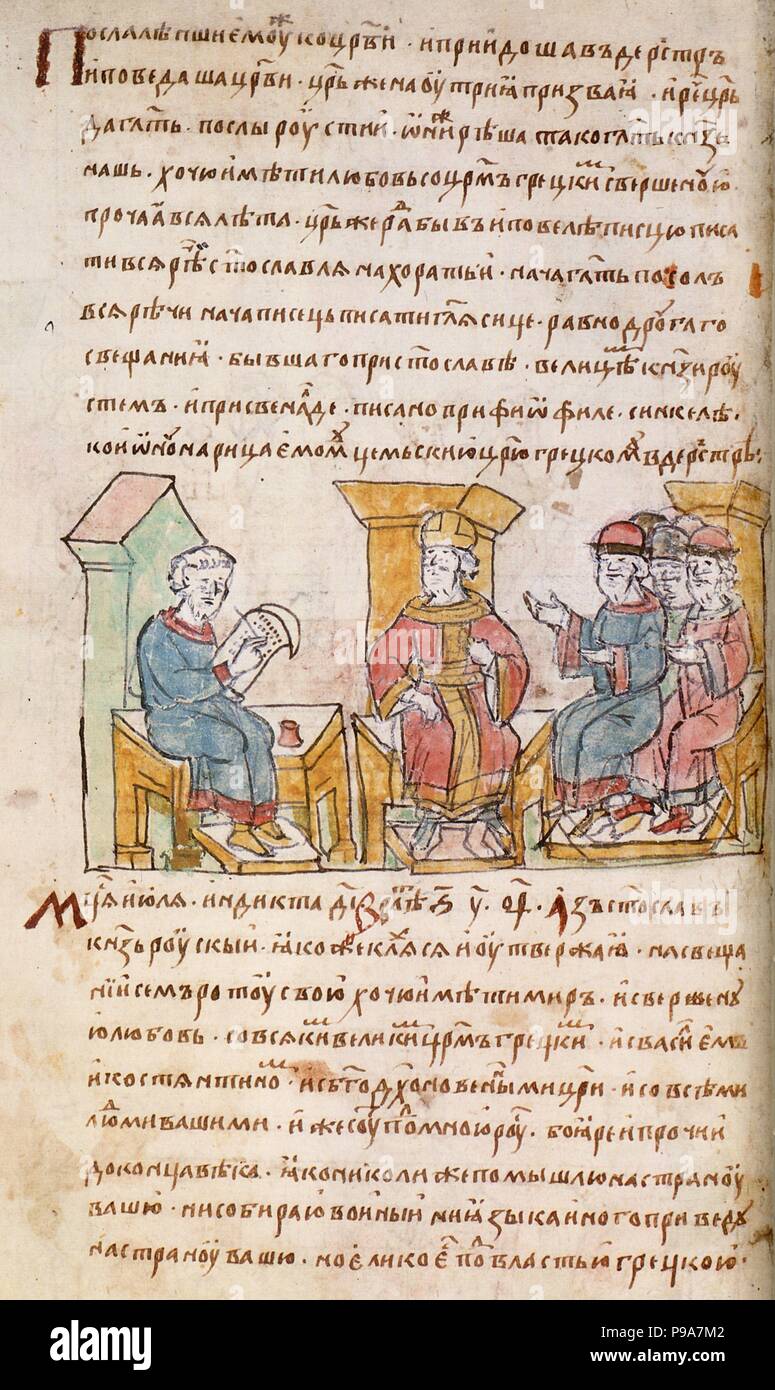 Послалѣпшиѐмоу҆жкоцр҃ви · ипрїидошавъдерестръ
ӥповедашацр҃ви · цр҃ьженаоутриꙗпризваꙗ · ирече цр҃ь
даглт҃ь · послы роустии · ѿниж рѣша такоглт҃ькнѧзь
нашь · хочюиме҆тилюбовьсоцр҃мъгрецкимсвершеноую
прочаꙗвсялѣта · цр҃ьжерадбывъиповелѣписцюписа
тивсярѣчис҃тославлянахоратьи · начаглт҃ьпосолъ
всярѣчи начаписецьписатигл҃ясице · равнодроугаго
свещаниꙗ · бывшагоприст҃ославѣ · велицѣмкнѧзироу
стемъ · иприсвеналде · писаноприфиѡфиле · синкелѣ ·
коиѡноу нарицаемомоу цемьскиюцр҃югрецкомоувдерестрѣ:
Мц҃аиюля · индикта д҃і влѣ ҂ѕ҃ · у҃ · оѳ҃ · Азъст҃ославъ
кнѧзьроускыи · ꙗкожекляхсяиоутвержаю · насвеща
ниисемъротоусвою хочюимѣтимиръ · исвершену
юлюбовь · совсякимвеликимцр҃мъгрецким · исвасильемъ
икостянтиномъ · исбг҃одх҃новеньымицр҃и · исовсѣми
людмивашими · ижесоуть подомноюроусь · бояреипрочии
доконцавѣка · ꙗконикол​ижепомышлюнастраноу
вашю · нисобираювоиныи ниꙗзыкаиногоприведу
настраноувашю · ноеликоесть подвластьюгрецкою ·
alamy
Image ID: P9A7M2
www.alamy.com